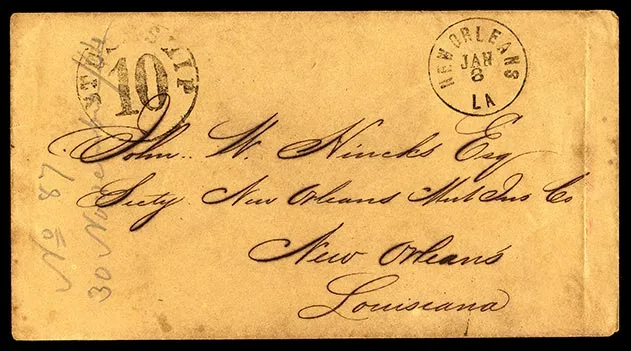 STEAMSHIP
10
NEW ORLEANS
JAN
8
LA
John.. W. Hincks Esq
Secty New Orleans Mut Ins Co
New Orleans
Louisiana
No 87
30